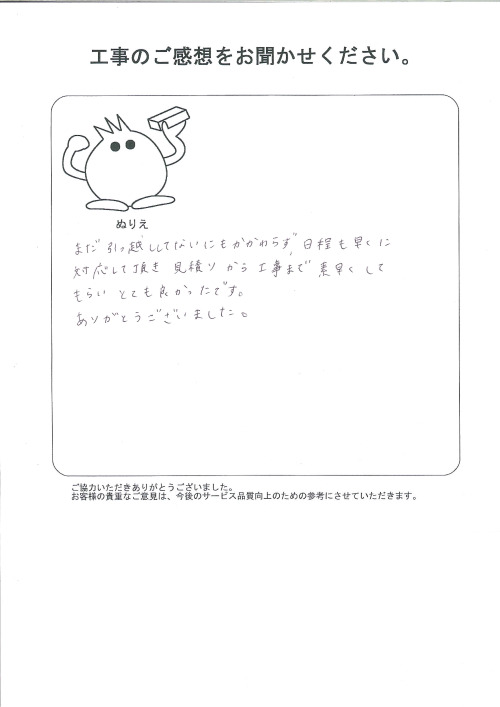 工事のご感想をお聞かせください。
ぬりえ
まだ引っ越ししてないにもかかわらず、日程も早くに
対応して頂き 見積りから工事まで 素早くして
もらい とても良かったです。
ありがとうございました。
ご協力いただきありがとうございました。
お客様の貴重なご意見は、今後のサービス品質向上のための参考にさせていただきます。